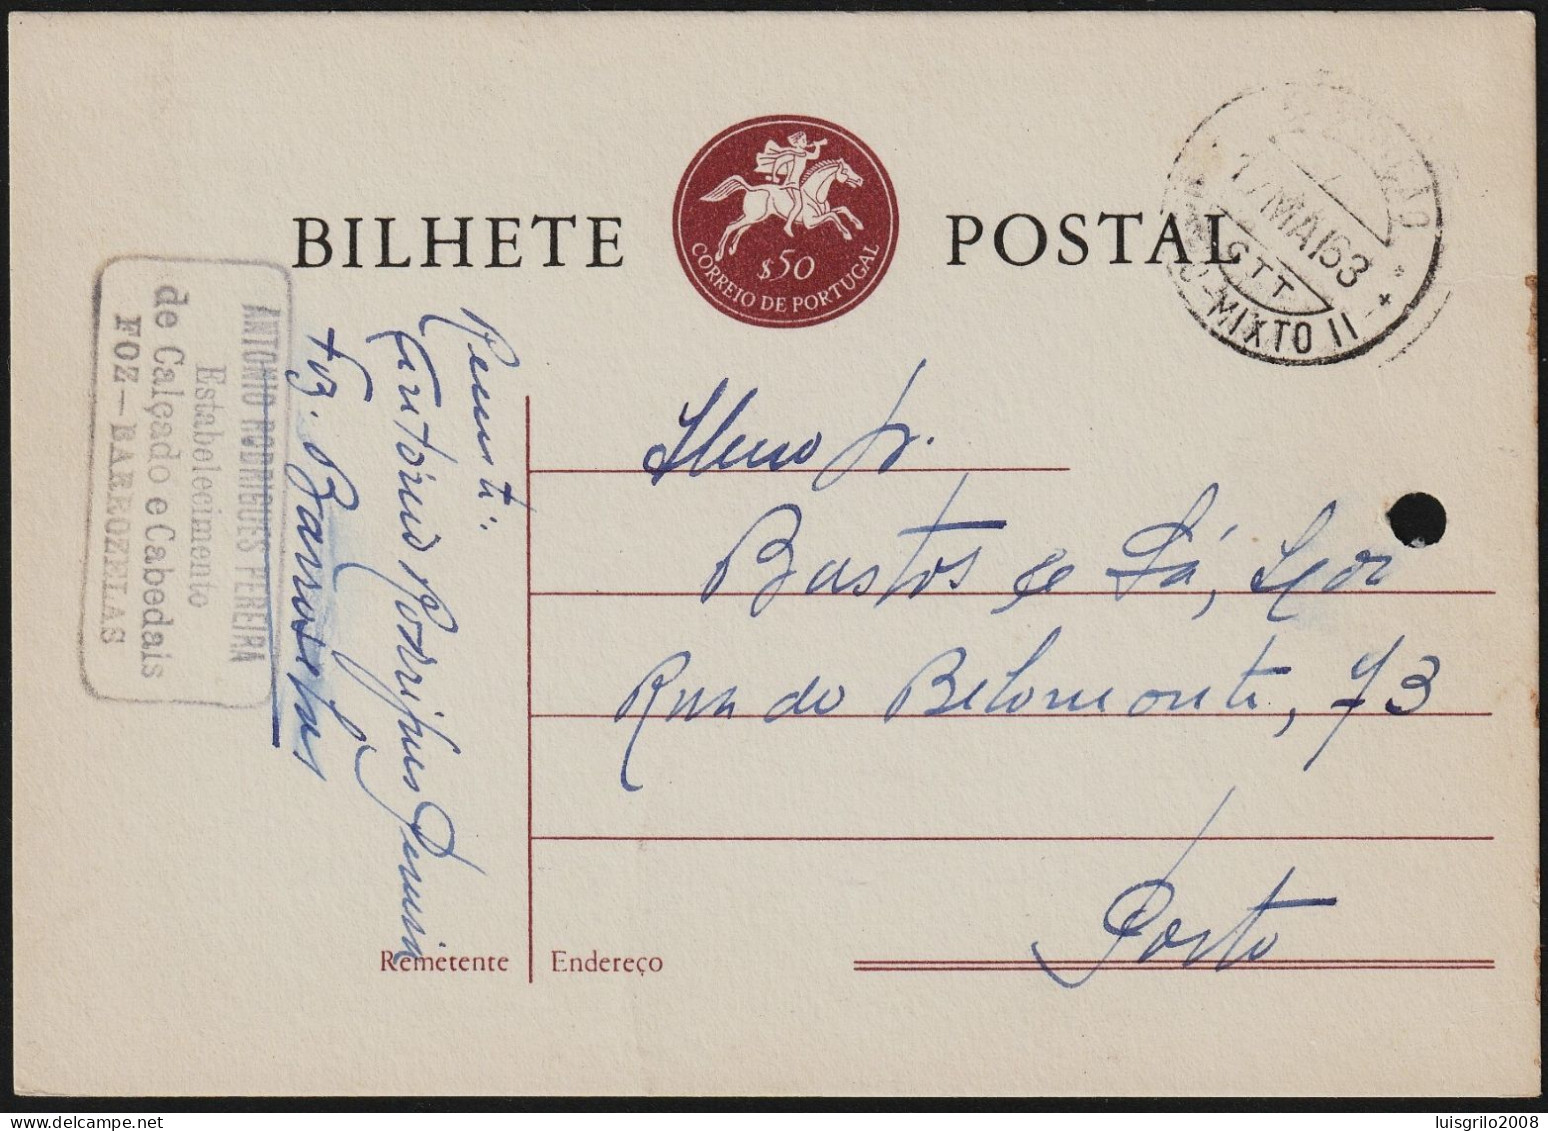 BILHETE POSTAL
$50
CORREIO DE PORTUGAL
17 MAI 63
C.T.T.
MIXTO II
ANTONIO RODRIGUES PEREIRA
Estabelecimento
de Calçado e Cabedais
FOZ — BARROZELAS
Antonio Rodrigues Pereira
Foz. Barroselas
Bastos & Sá,
Rua de Belomonte, 73
Porto
Remetente
Endereço
luisgrilo2008